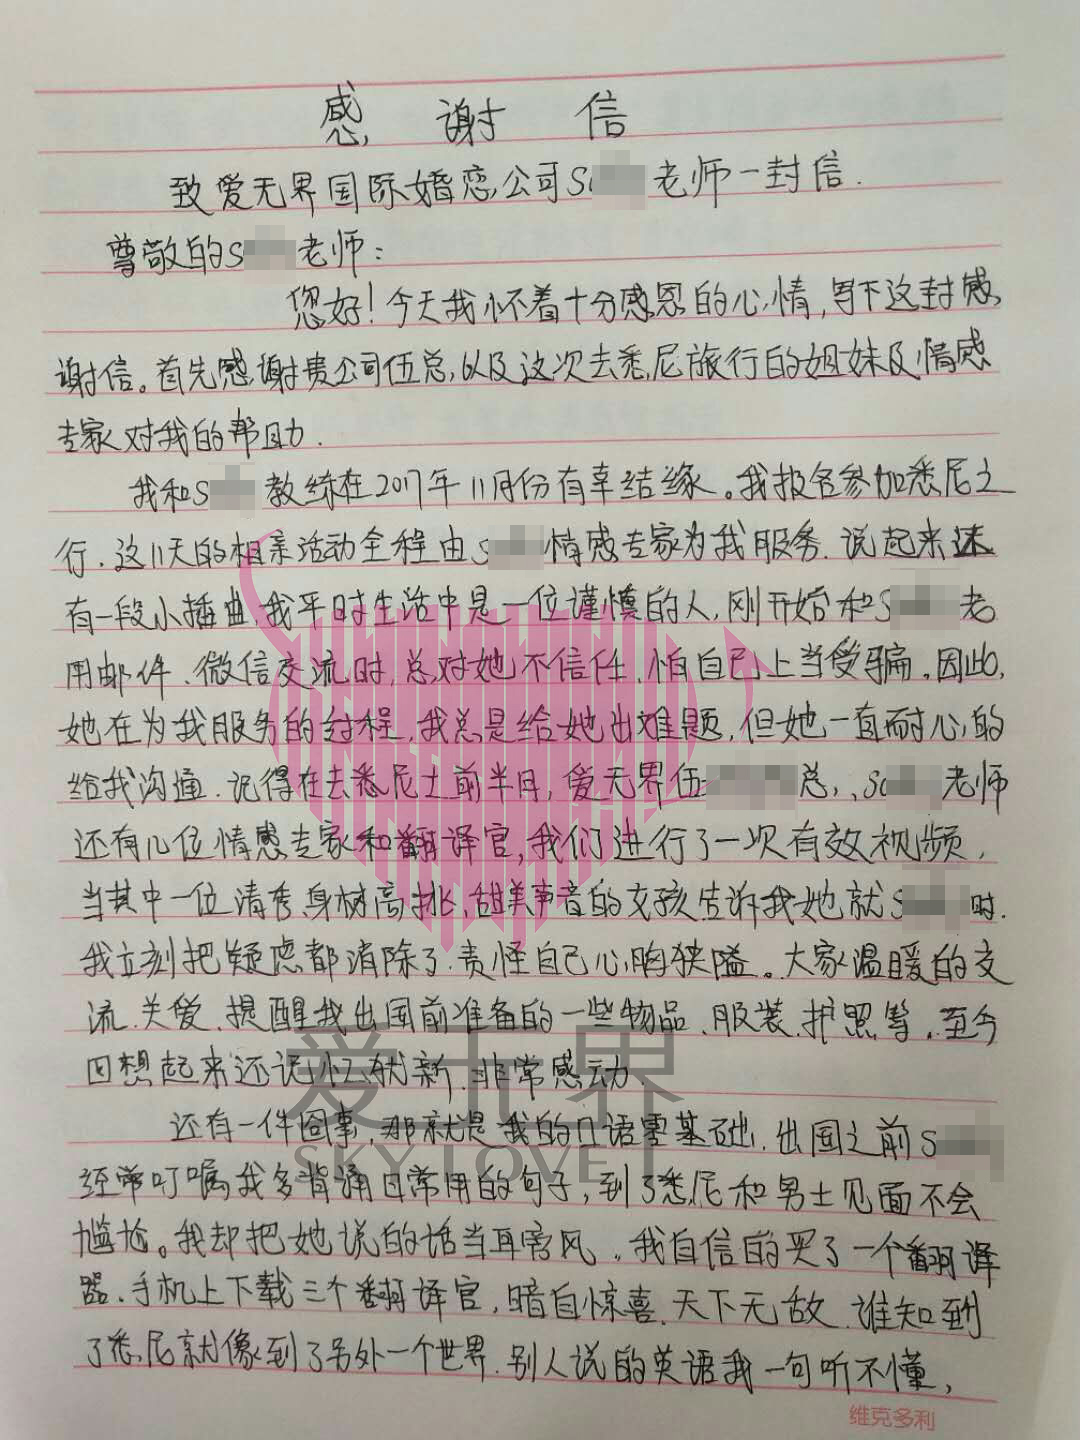 感 谢 信
致爱无界国际婚恋公司S 老师一封信.
尊敬的S 老师:
您好!今天我怀着十分感恩的心情,写下这封感
谢信。首先感谢贵公司伍总,以及这次去悉尼旅行的姐妹及情感
专家对我的帮助.
我和S 教练在2017年11月份有幸结缘。我报名参加悉尼之
行.这11天的相亲活动全程由S 情感专家为我服务.说起来还
有一段小插曲,我平时生活中是一位谨慎的人,刚开始和S 老
用邮件、微信交流时,总对她不信任,怕自己上当受骗。因此,
她在为我服务的过程,我总是给她出难题,但她一直耐心的
给我沟通.记得在去悉尼士前半月,爱无界伍 总,、S 老师
还有几位情感专家和翻译官,我们进行了一次有效视频,
当其中一位清秀身材高挑,甜美声音的女孩告诉我她就S 时.
我立刻把疑虑都消除了.责怪自己心胸狭隘。大家温暖的交
流.关爱.提醒我出国前准备的一些物品、服装.护照等.至今
回想起来还记忆犹新.非常感动
还有一件囧事,那就是我的口语零基础.出国之前S
经常叮嘱我多背诵日常用的句子,到了悉尼和男士见面不会
尴尬。我却把她说的话当耳旁风.我自信的买了一个翻译
器.手机上下载三个翻译官,暗自惊喜.天下无敌.谁知到
了悉尼就像到了另外一个世界.别人说的英语我一句听不懂,
维克多利
爱无界
SKY LOVE